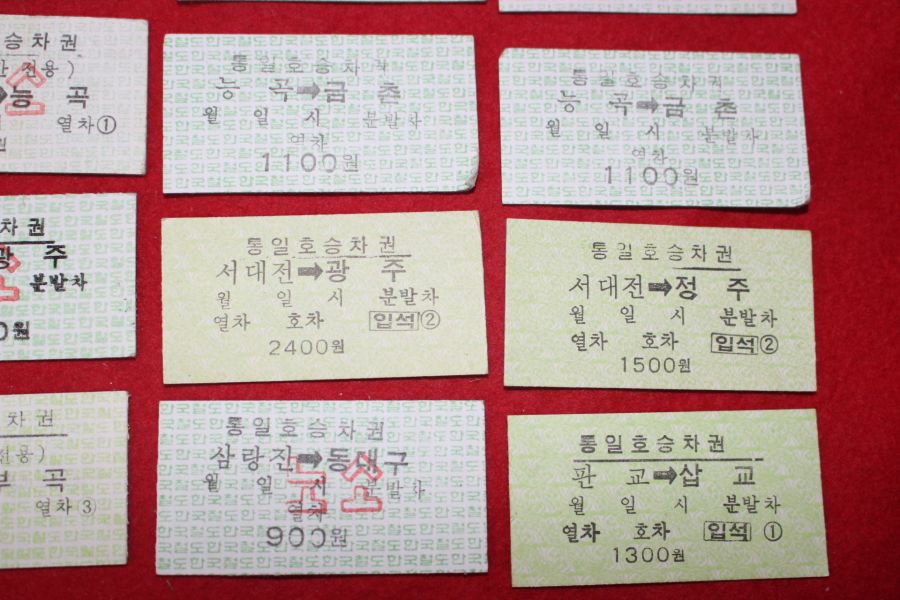 승차권
전용)
➡능 곡
열차①
원
통일호승차권
능 곡➡금 촌
월 일 시 분발차
열차
1100원
통일호승차권
능 곡➡금 촌
월 일 시 분발차
열차
1100원
차권
광 주
분발차
0원
통일호승차권
서대전➡광 주
월 일 시 분발차
열차 호차 입석②
2400원
통일호승차권
서대전➡정 주
월 일 시 분발차
열차 호차 입석②
1500원
차권
전용)
부 곡
열차③
통일호승차권
삼랑진➡동대구
월 일 시 분발차
열차
900원
소
통일호승차권
판 교➡삽 교
월 일 시 분발차
열차 호차 입석 ①
1300원